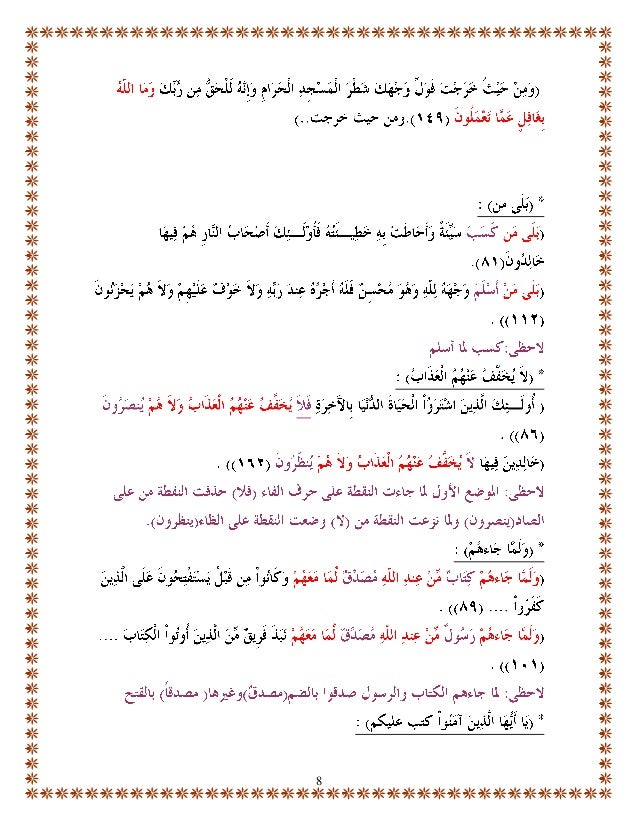 (وَمِنْ حَيْثُ خَرَجْتَ فَوَلِّ وَجْهَكَ شَطْرَ الْمَسْجِدِ الْحَرَامِ وَإِنَّهُ لَلْحَقُّ مِن رَّبِّكَ وَمَا اللّهُ
بِغَافِلٍ عَمَّا تَعْمَلُونَ (١٤٩).ومن حيث خرجت..)
* (بَلَى من) :
(بَلَى مَن كَسَبَ سَيِّئَةً وَأَحَاطَتْ بِهِ خَطِيـــئَتُهُ فَأُوْلَـــئِكَ أَصْحَابُ النَّارِ هُمْ فِيهَا
خَالِدُونَ(٨١).
(بَلَى مَنْ أَسْلَمَ وَجْهَهُ لِلّهِ وَهُوَ مُحْسِنٌ فَلَهُ أَجْرُهُ عِندَ رَبِّهِ وَلاَ خَوْفٌ عَلَيْهِمْ وَلاَ هُمْ يَحْزَنُونَ
(١١٢)) .
لاحظي:كسب لما أسلم
* (لاَ يُخَفَّفُ عَنْهُمُ الْعَذَابُ) :
( أُولَـــئِكَ الَّذِينَ اشْتَرَوُاْ الْحَيَاةَ الدُّنْيَا بِالآَخِرَةِ فَلاَ يُخَفَّفُ عَنْهُمُ الْعَذَابُ وَلاَ هُمْ يُنصَرُونَ
(٨٦)) .
(خَالِدِينَ فِيهَا لاَ يُخَفَّفُ عَنْهُمُ الْعَذَابُ وَلاَ هُمْ يُنظَرُونَ (١٦٢)) .
لاحظي: الموضع الأول لما جاءت النقطة على حرف الفاء (فلا) حذفت النقطة من على
الصاد(ينصرون) ولما نزعت النقطة من (لا) وضعت النقطة على الظاء(ينظرون).
* (وَلَمَّا جَاءهُمْ) :
(وَلَمَّا جَاءهُمْ كِتَابٌ مِّنْ عِندِ اللّهِ مُصَدِّقٌ لِّمَا مَعَهُمْ وَكَانُواْ مِن قَبْلُ يَسْتَفْتِحُونَ عَلَى الَّذِينَ
كَفَرُواْ .... (٨٩)) .
(وَلَمَّا جَاءهُمْ رَسُولٌ مِّنْ عِندِ اللّهِ مُصَدِّقٌ لِّمَا مَعَهُمْ نَبَذَ فَرِيقٌ مِّنَ الَّذِينَ أُوتُواْ الْكِتَابَ ....
(١٠١)) .
لاحظي: لما جاءهم الكتاب والرسول صدقوا بالضم(مصدقٌ)وغيرها( مصدقاً) بالفتح
* (يَا أَيُّهَا الَّذِينَ آمَنُواْ كتب عليكم) :
8